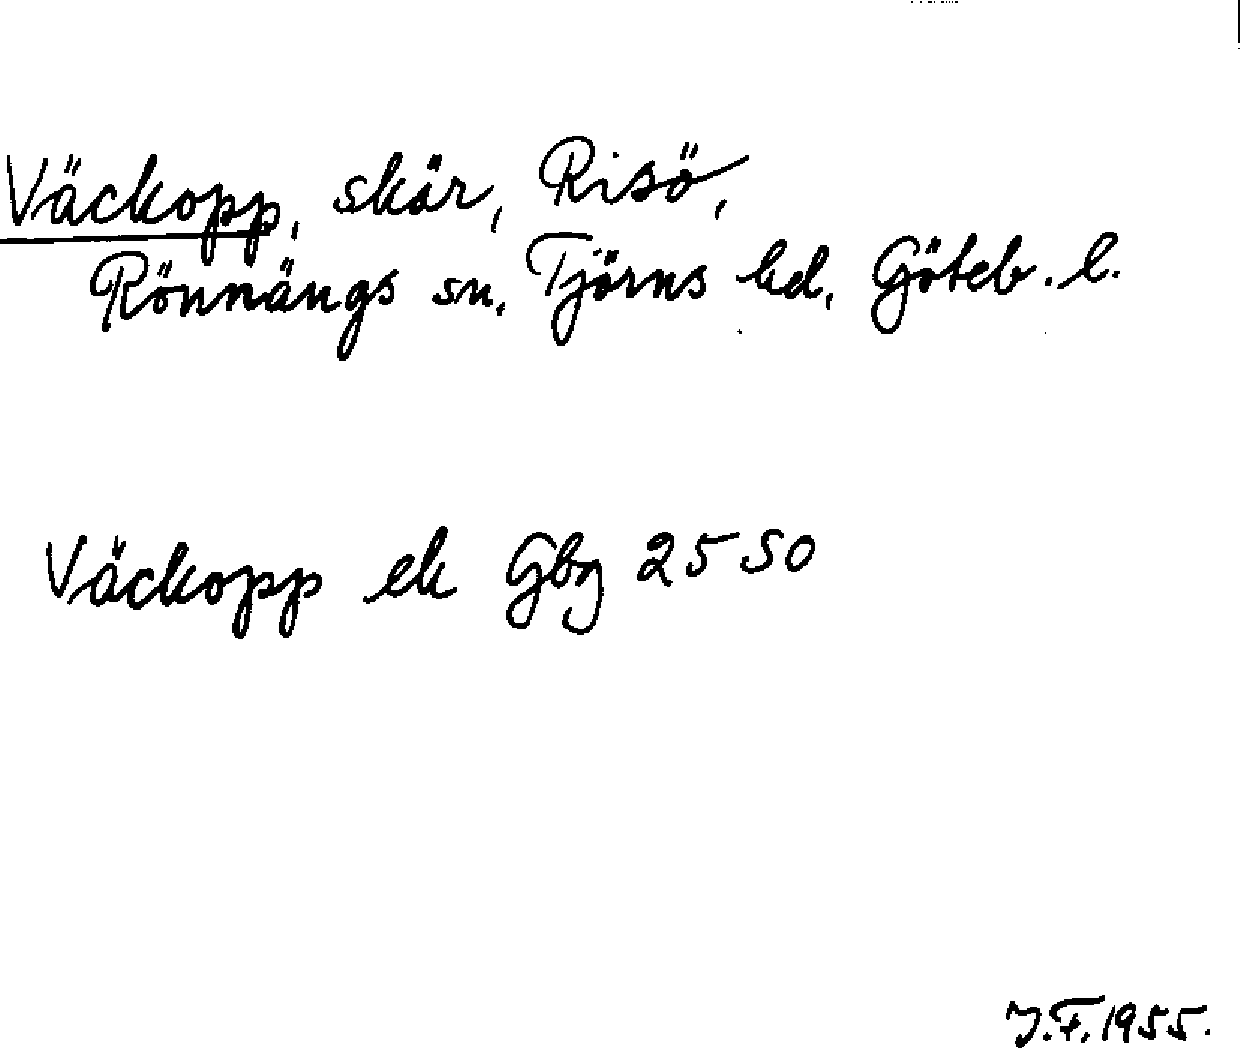 Väckopp, skär, Risö,
Rönnängs sn, Tjörns hd, Göteb. l.
Väckopp ek Gbg 2550
J.F. 1955.